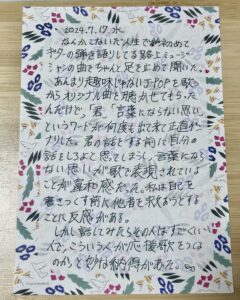 2024.7.17.水
なんかこないだ人生で初めて
ギターの弾き語りしてる路上ミュージ
シャンの曲をちゃんと足をとめて聞いた。
あんまり趣味じゃないJ-POPを歌
からオリジナル曲を聴かせてもらった
んだけど、「君」「言葉にならない思い」
というワードが何度も出て来て正直
ナリした。君の話をする前に自分の
話をしろよと思ってしまうし、言葉になら
ない思いが歌で表現されている
ことが違和感だった。私は自己を
書きつくす前に他者を救おうとする
ことに反感がある。
しかし話してみたらその人はすごくいい
人で、こういう人が応援歌をつくる
のかと妙な納得があった。